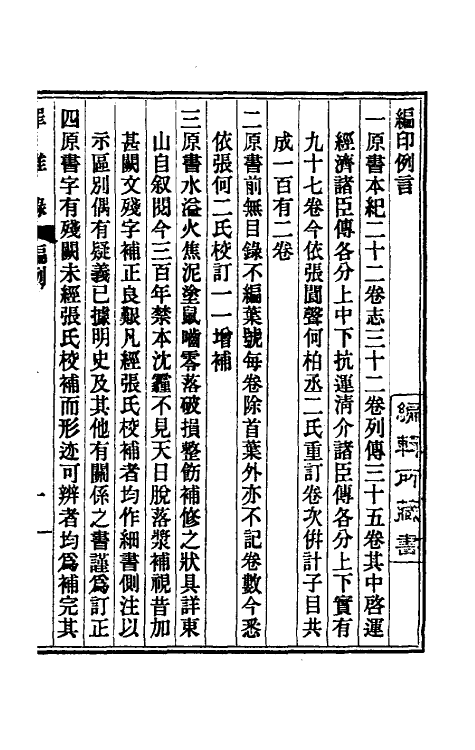 編印例言
一原書本紀二十二卷志三十二卷列傳三十五卷其中啓運
經濟諸臣傳各分上中下抗運清介諸臣傳各分上下實有
九十七卷今依張閬聲何柏丞二氏重訂卷次倂計子目共
成一百有二卷
二原書前無目錄不編葉號每卷除首葉外亦不記卷數今悉
依張何二氏校訂一一增補
三原書水溢火焦泥塗鼠嚙零落破損整飭補修之狀具詳東
山自叙閱今三百年禁本沈霾不見天日脫落漿補視昔加
甚闕文殘字補正良艱凡經張氏校補者均作細書側注以
示區別偶有疑義已據明史及其他有關係之書謹爲訂正
四原書字有殘闕未經張氏校補而形迹可辨者均爲補完其
罪惟錄
編例
一
編輯所藏書